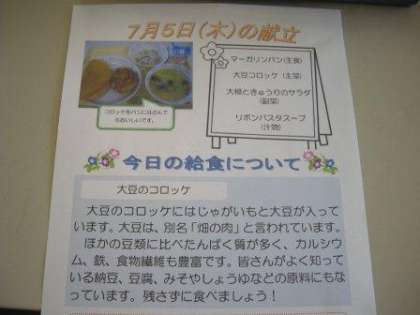 7月5日(木)の献立
マーガリンパン(主食)
大豆コロッケ (主菜)
大根ときゅうりのサラダ
(副菜)
リボンパスタスープ
(汁物)
コロッケをパンにはさんで
もおいしいです。
今日の給食について
大豆のコロッケ
大豆のコロッケにはじゃがいもと大豆が入って
います。大豆は、別名「畑の肉」と言われています。
ほかの豆類に比べたんぱく質が多く、カルシウ
ム、鉄、食物繊維も豊富です。皆さんがよく知って
いる納豆、豆腐、みそやしょうゆなどの原料にもな
っています。残さずに食べましょう！